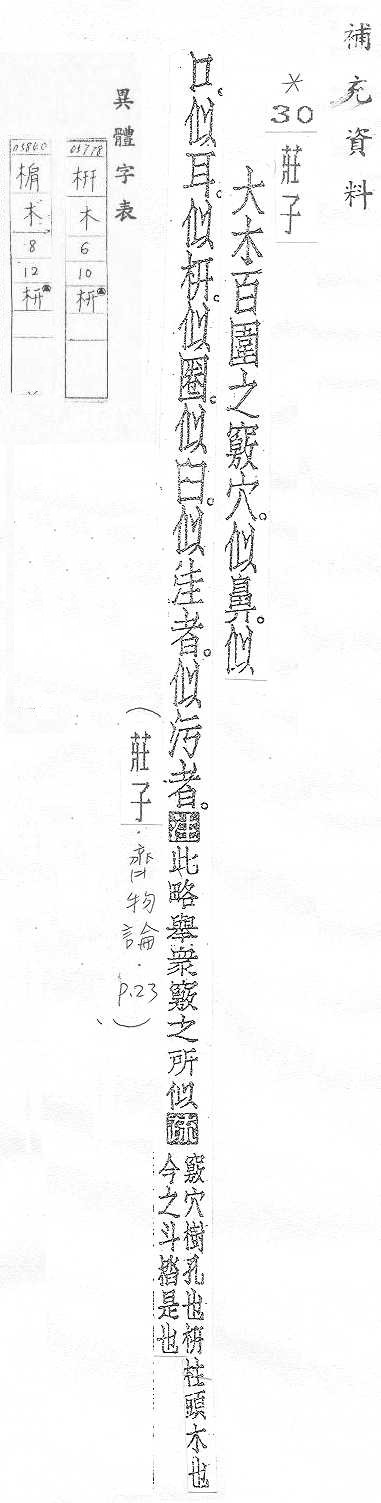 補充資料
*30 莊子
大木百圍之竅穴。似鼻。似
口。似耳。似枅。似圈。似臼。似洼者。似污者。注此略舉衆竅之所似疏
竅穴樹孔也枅柱頭木也
今之斗楷是也
(莊子.齊物論.p.23、)
異體字表
05778
枅
木
6
10
枅
05860
木
8
12
枅